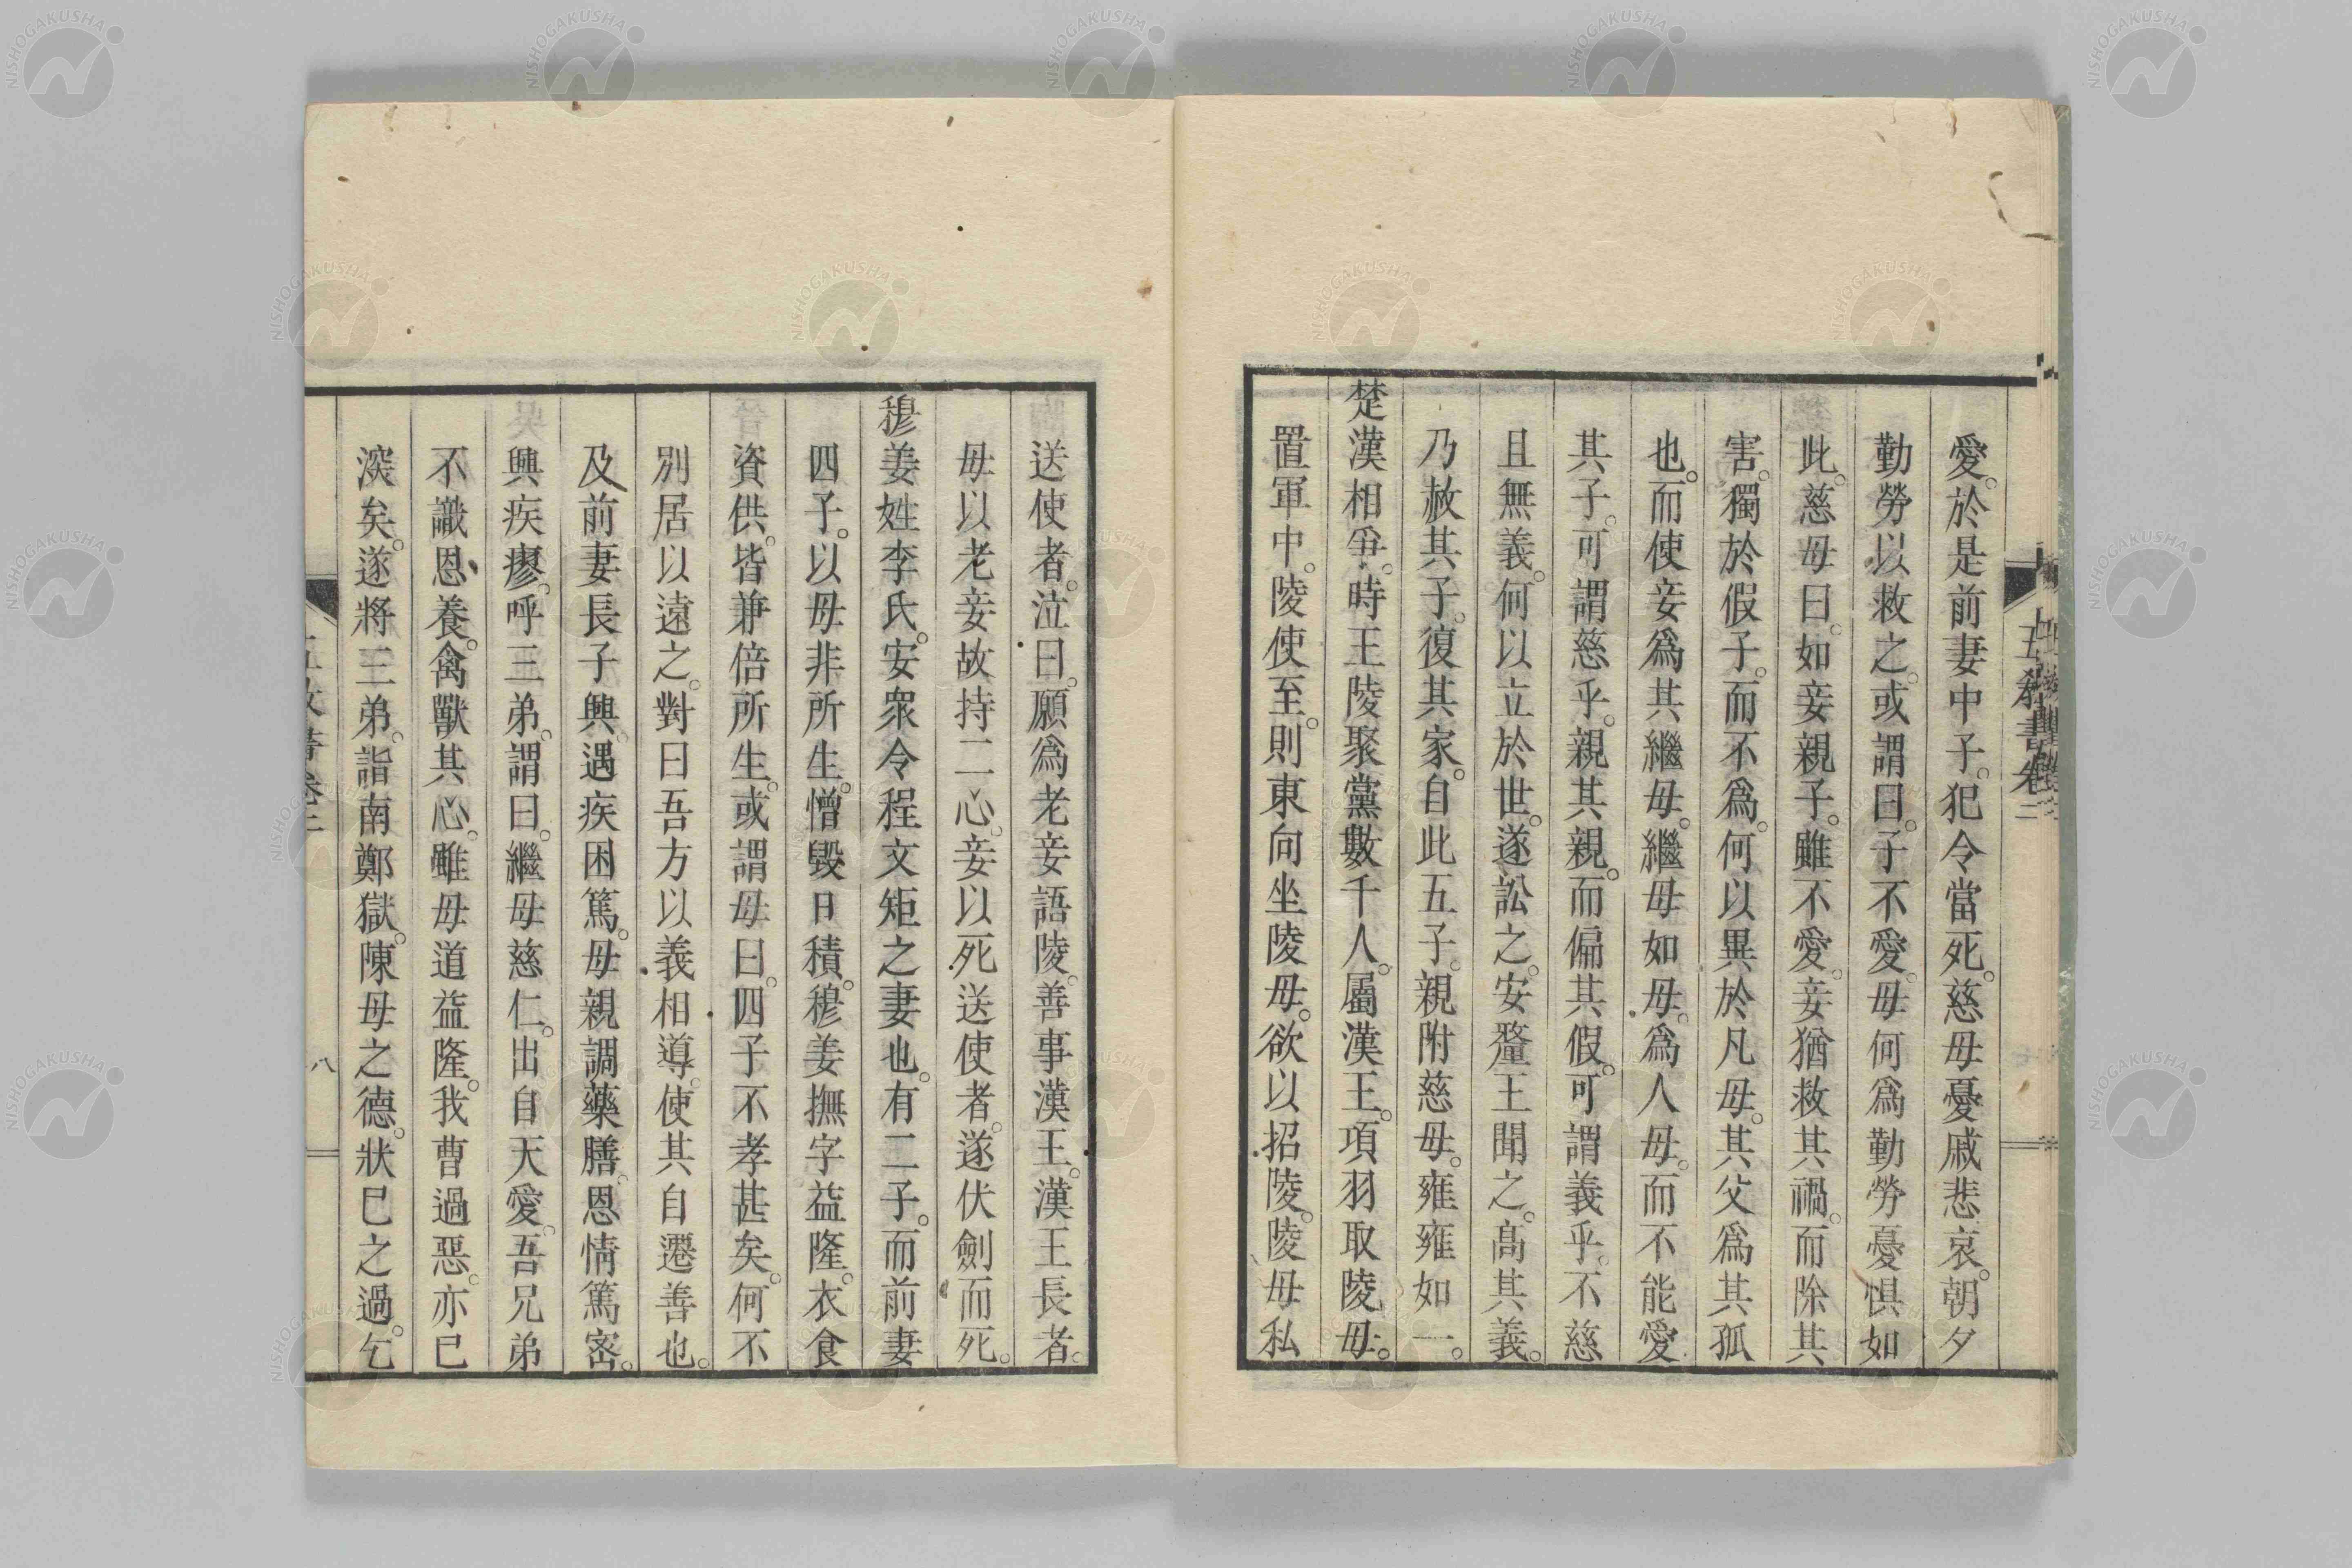 愛。於是前妻中子。犯令當死。慈母憂戚悲哀。朝夕
勤勞以救之。或謂曰。子不愛。母何爲勤勞憂懼如
此。慈母曰。如妾親子。雖不愛。妾猶救其禍。而除其
害。獨於假子。而不爲。何以異於凡母。其父爲其孤
也。而使妾爲其繼母。繼母如母。爲人母。而不能愛
其子。可謂慈乎。親其親。而偏其假。可謂義乎。不慈
且無義。何以立於世。遂訟之。安釐王聞之。高其義。
乃赦其子。復其家。自此五子。親附慈母。雍雍如一。
楚漢相爭。時王陵聚黨數千人。屬漢王。項羽取陵母。
置軍中。陵使至。則東向坐陵母。欲以招陵。陵母私
五教書卷二
送使者。泣曰。願爲老妾語陵。善事漢王。漢王長者。
母以老妾故持二心。妾以死送使者。遂伏劍而死。
穆姜姓李氏。安衆令程文矩之妻也。有二子。而前妻
四子。以母非所生。憎毀日積。穆姜撫字益隆。衣食
資供。皆兼倍所生。或謂母曰。四子不孝甚矣。何不
別居以遠之。對曰吾方以義相導。使其自遷善也。
及前妻長子興。遇疾困篤。母親調藥膳。恩情篤密。
興疾瘳。呼三弟。謂曰。繼母慈仁。出自天愛。吾兄弟
不識恩養。禽獸其心。雖母道益隆。我曹過惡。亦已
深矣。遂將三弟。詣南鄭獄。陳母之德。狀已之過。乞
五教書卷二
八
NISHOGAKUSHA